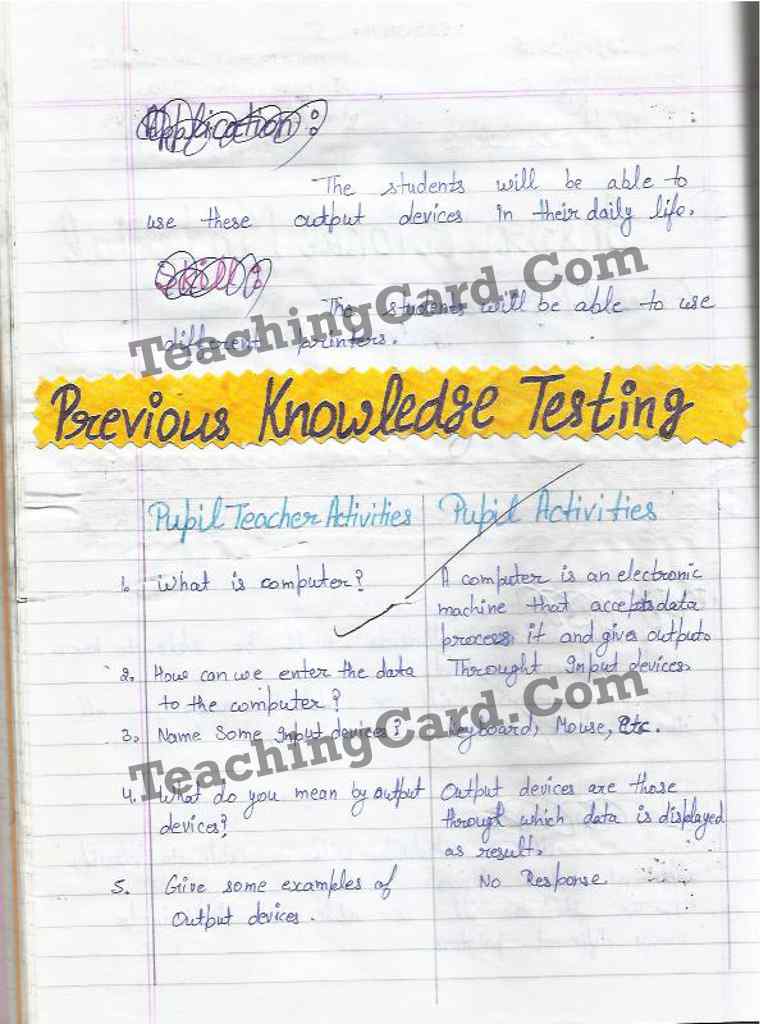 Application :
The students will be able to
use these output devices in their daily life.
Skill :
The students will be able to use
different printers.
TeachingCard.Com
Previous Knowledge Testing
Pupil Teacher Activities
Pupil Activities
1. What is computer?
A computer is an electronic
machine that accepts data
process it and gives output.
2. How can we enter the data
to the computer?
Throught Input devices.
3. Name Some Input devices?
Keyboard, Mouse, Etc.
TeachingCard.Com
4. What do you mean by output
devices?
Output devices are those
through which data is displayed
as result.
5. Give some examples of
Output devices.
No Response